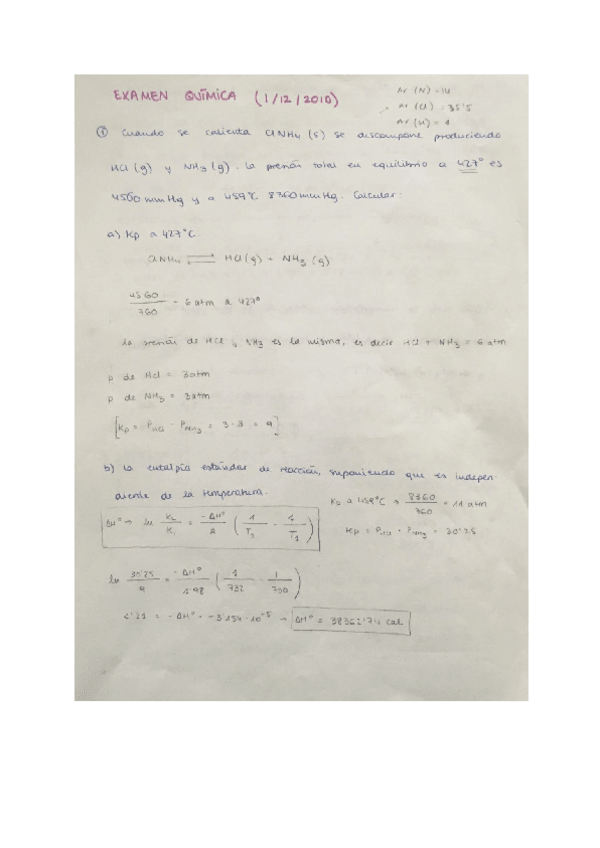 EXAMEN QUÍMICA (1/12/2010)
Ar (N) = 14
Ar (Cl) = 35'5
Ar (H) = 1
① Cuando se calienta ClNH4 (s) se descompone produciendo
HCl (g) y NH3 (g). La presión total en equilibrio a 427° es
4560 mmHg y a 459°C 8360 mmHg. Calcular:
a) Kp a 427°C
ClNH4 ⇌ HCl (g) + NH3 (g)
4560/760 = 6 atm a 427°
La presión de HCl y NH3 es la misma, es decir HCl + NH3 = 6 atm
p de HCl = 3 atm
p de NH3 = 3 atm
[Kp = PHCl · PNH3 = 3 · 3 = 9]
b) La entalpía estándar de reacción, suponiendo que es indepen-
diente de la temperatura.
Kp a 459°C → 8360/760 = 11 atm
Kp = PHCl · PNH3 = 30'25
ΔH° → ln K2/K1 = -ΔH°/R (1/T2 - 1/T1)
ln 30'25/9 = -ΔH°/1'98 (1/732 - 1/700)
1'21 = -ΔH° · -3'154·10⁻⁵ → ΔH° = 38362'74 cal